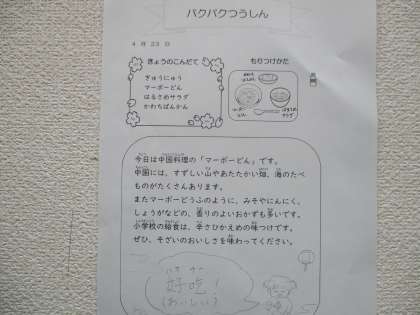 パクパクつうしん
4 月 23 日
きょうのこんだて
ぎゅうにゅう
マーボーどん
はるさめサラダ
かわちばんかん
もりつけかた
今日は中国料理の「マーボーどん」です。
中国には、すずしい山やあたたかい畑、海のたべ
ものがたくさんあります。
またマーボーどうふのように、みそやにんにく、
しょうがなどの、香りのよいおかずも多いです。
小学校の給食は、辛さひかえめの味つけです。
ぜひ、そざいのおいしさを味わってください。
好吃!
(おいしい)